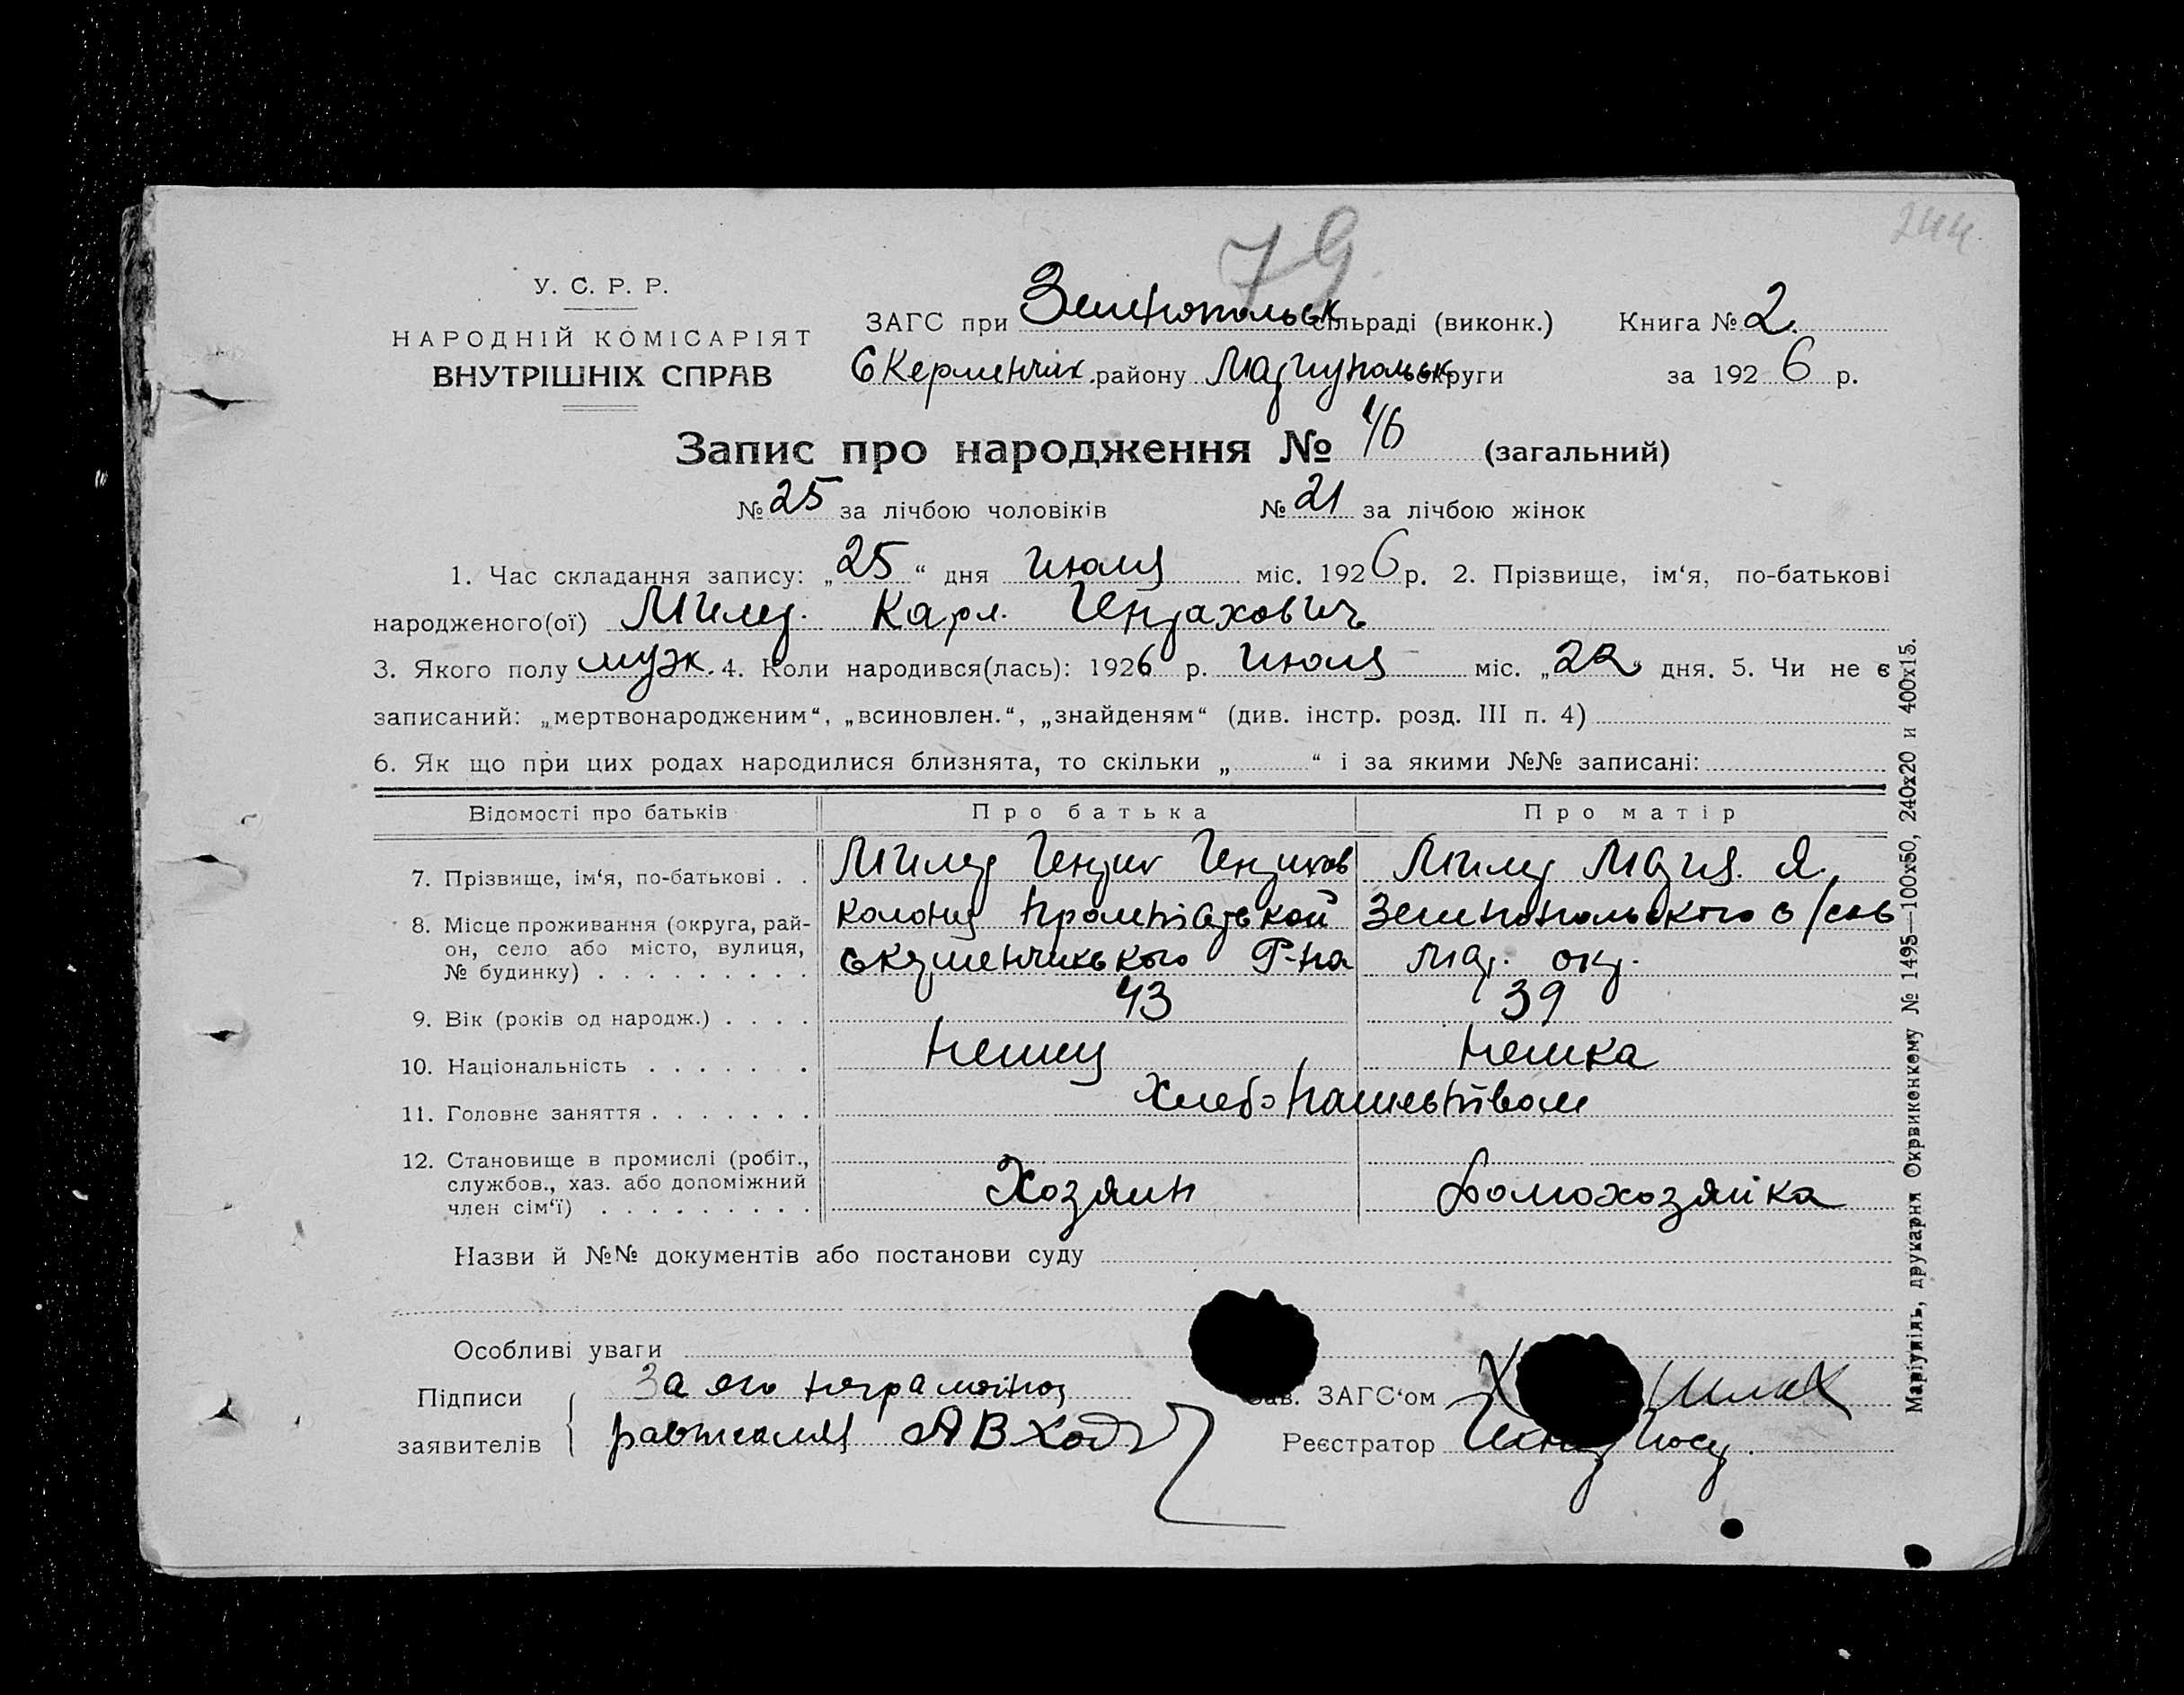 79
244
У. С. Р. Р.
НАРОДНІЙ КОМІСАРІЯТ
ВНУТРІШНІХ СПРАВ
ЗАГС при Земнопольск сільраді (виконк.) Книга № 2.
С Керменчик. району Мариупольск округи за 1926 р.
Запис про народження № 46 (загальний)
№ 25 за лічбою чоловіків № 21 за лічбою жінок
1. Час складання запису: „25“ дня июля міс. 1926 р. 2. Прізвище, ім‘я, по-батькові
народженого(ої) Милер. Карл.
3. Якого полу муж. 4. Коли народився(лась): 1926 р. июля міс. „22“ дня. 5. Чи не є
записаний: „мертвонародженим“, „всиновлен.“, „знайденям“ (див. інстр. розд. III п. 4)
6. Як що при цих родах народилися близнята, то скільки „ “ і за якими №№ записані:
Відомості про батьків Про батька Про матір
7. Прізвище, ім‘я, по-батькові . . Милер Генрих Генрихов Милер Мария. Я.
8. Місце проживання (округа, рай- колония Кронштадской Земнопольского с/сов
он, село або місто, вулиця, Р-на Мар. окр.
№ будинку) . . . . . . . . .
9. Вік (років од народж.) . . . . 43 39
10. Національність . . . . . . . немец немка
11. Головне заняття . . . . . . . Хлебопашеством
12. Становище в промислі (робіт.,
службов., хаз. або допоміжний Хозяин Домохозяйка
член сім‘ї) . . . . . . . . .
Назви й №№ документів або постанови суду
Особливі уваги
Підписи За его неграмотной
заявителів АВ
Зав. ЗАГС‘ом
Реєстратор
Маріупіль, друкарня Окрвиконкому № 1495—100х50, 240х20 и 400х15.